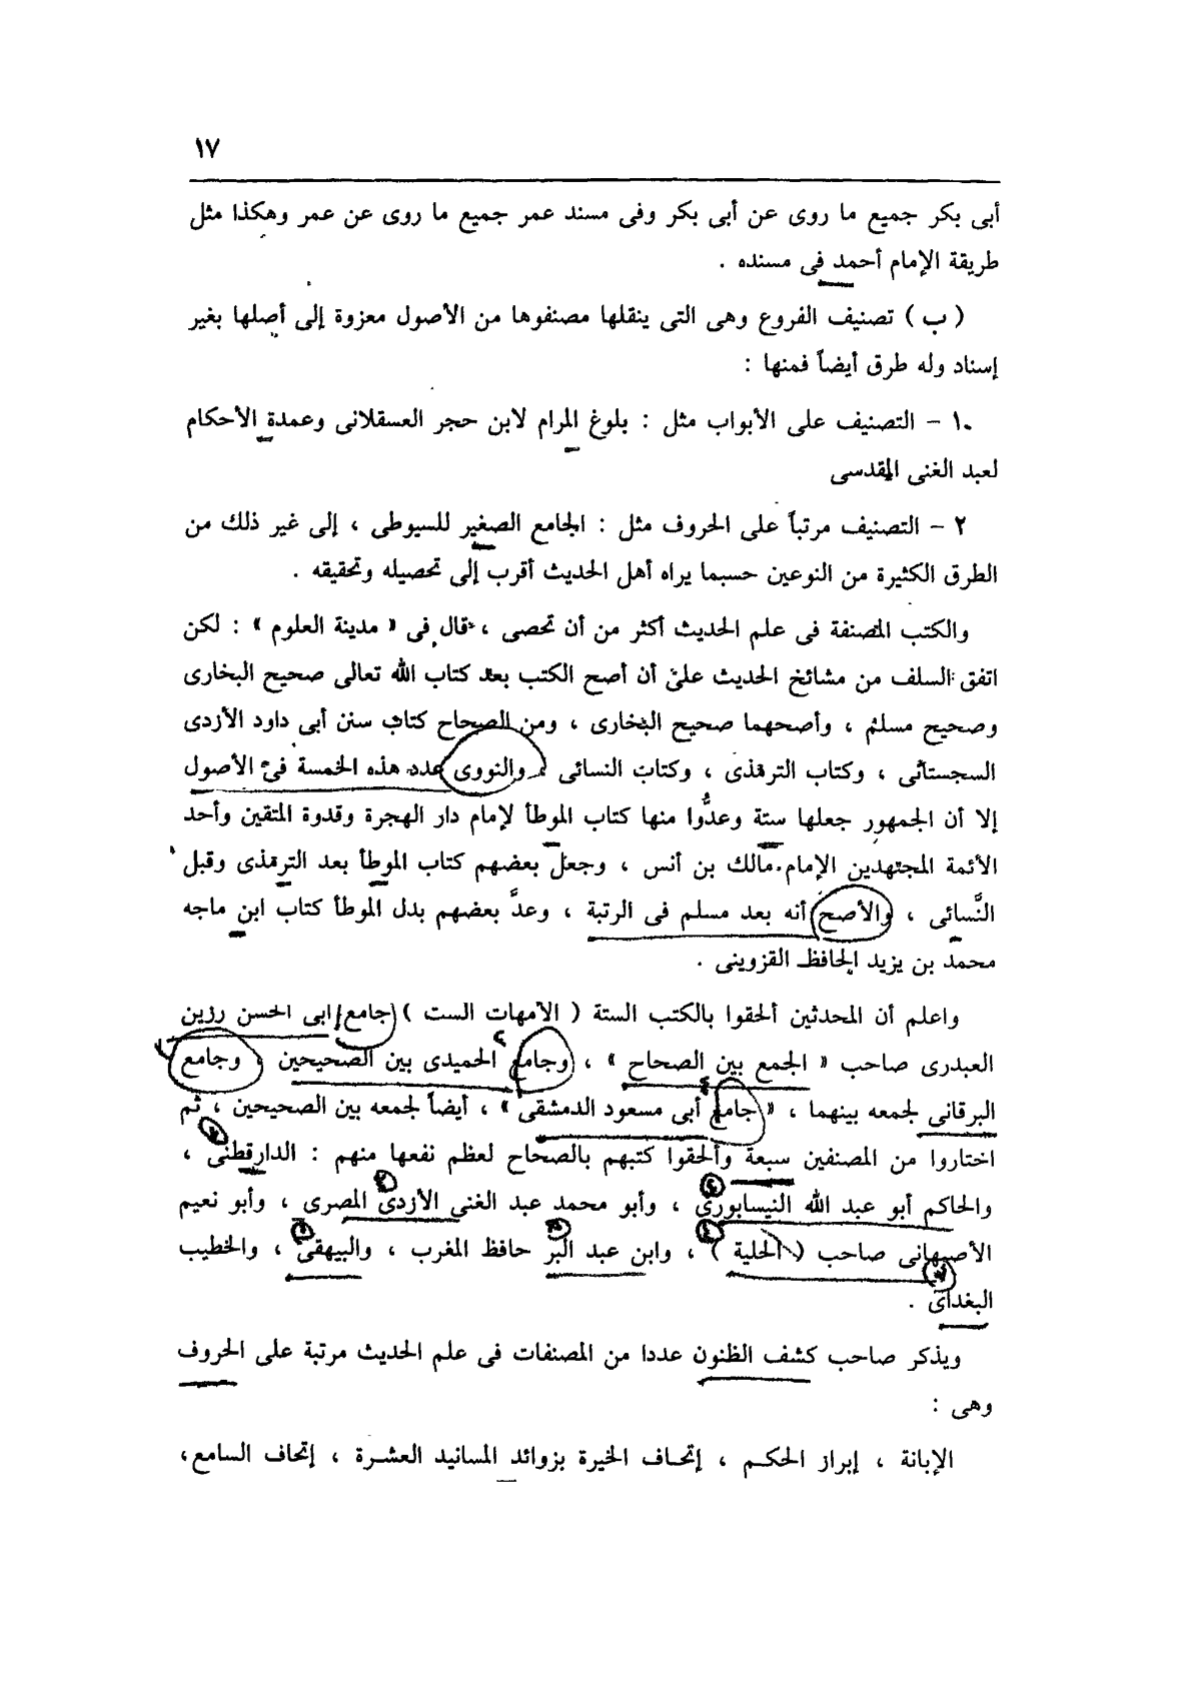 ١٧
أبى بكر جميع ما روى عن أبى بكر وفى مسند عمر جميع ما روى عن عمر وهكذا مثل
طريقة الإمام أحمد فى مسنده .
( ب ) تصنيف الفروع وهى التى ينقلها مصنفوها من الأصول معزوة إلى أصلها بغير
إسناد وله طرق أيضاً فمنها :
١ - التصنيف على الأبواب مثل : بلوغ المرام لابن حجر العسقلانى وعمدة الأحكام
لعبد الغنى المقدسى
٢ - التصنيف مرتباً على الحروف مثل : الجامع الصغير للسيوطى ، إلى غير ذلك من
الطرق الكثيرة من النوعين حسبما يراه أهل الحديث أقرب إلى تحصيله وتحقيقه .
والكتب المصنفة فى علم الحديث أكثر من أن تحصى ، قال فى « مدينة العلوم » : لكن
اتفق السلف من مشائخ الحديث على أن أصح الكتب بعد كتاب الله تعالى صحيح البخارى
وصحيح مسلم ، وأصحهما صحيح البخارى ، ومن الصحاح كتاب سنن أبى داود الأزدى
السجستانى ، وكتاب الترمذى ، وكتاب النسائى ، والنووى عدد هذه الخمسة فى الأصول
إلا أن الجمهور جعلها ستة وعدُّوا منها كتاب الموطأ لإمام دار الهجرة وقدوة المتقين وأحد
الأئمة المجتهدين الإمام مالك بن أنس ، وجعل بعضهم كتاب الموطأ بعد الترمذى وقبل
النَّسائى ، والأصح أنه بعد مسلم فى الرتبة ، وعدَّ بعضهم بدل الموطأ كتاب ابن ماجه
محمد بن يزيد الحافظ القزوينى .
واعلم أن المحدثين ألحقوا بالكتب الستة ( الأمهات الست ) جامع أبى الحسن رزين
العبدرى صاحب « الجمع بين الصحاح » ، وجامع الحميدى بين الصحيحين ، وجامع
البرقانى لجمعه بينهما ، « جامع أبى مسعود الدمشقى » ، أيضاً لجمعه بين الصحيحين ، ثم
اختاروا من المصنفين سبعة وألحقوا كتبهم بالصحاح لعظم نفعها منهم : الدارقطنى ،
والحاكم أبو عبد الله النيسابورى ، وأبو محمد عبد الغنى الأزدى المصرى ، وأبو نعيم
الأصبهانى صاحب ( الحلية ) ، وابن عبد البر حافظ المغرب ، والبيهقى ، والخطيب
البغداى .
ويذكر صاحب كشف الظنون عددا من المصنفات فى علم الحديث مرتبة على الحروف
وهى :
الإبانة ، إبراز الحكم ، إتحاف الخيرة بزوائد المسانيد العشرة ، إتحاف السامع ،